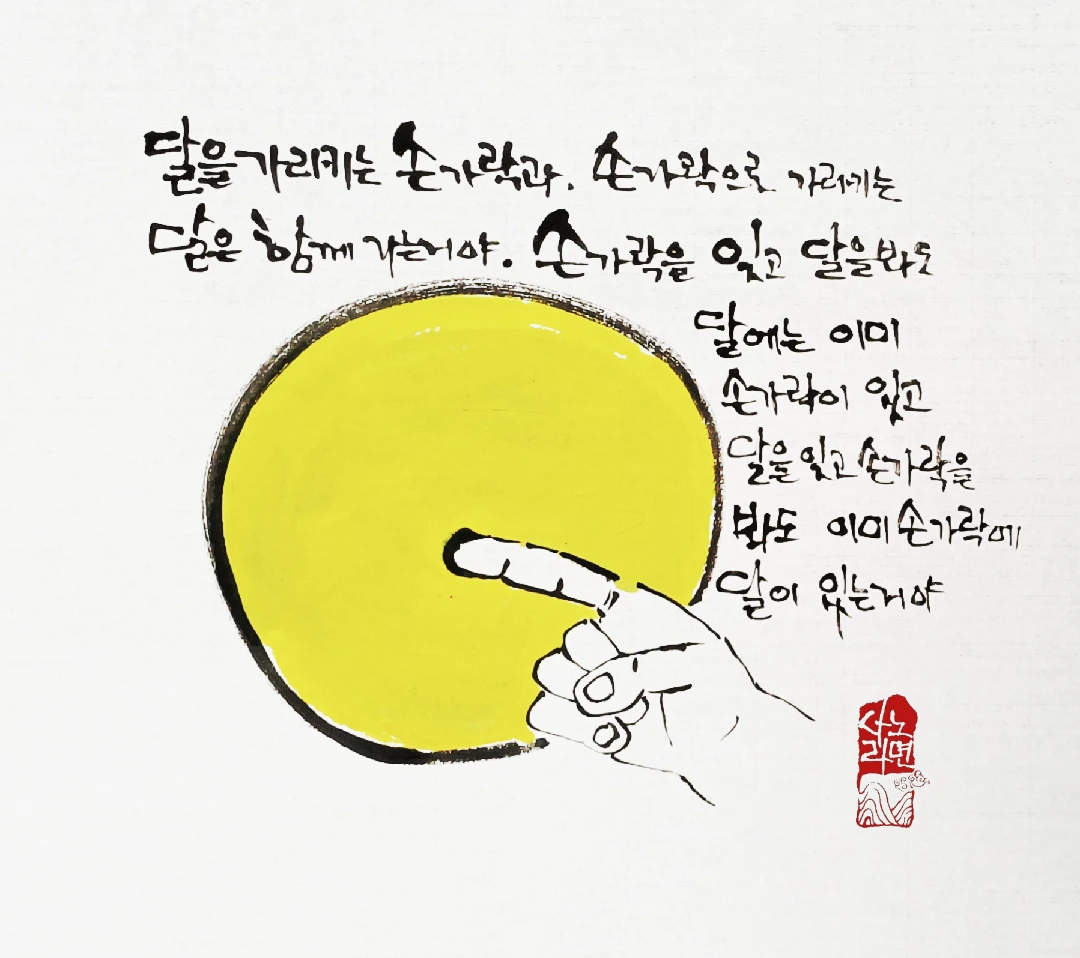 달을 가리키는 손가락과. 손가락으로 가리키는
달은 함께 가는거야. 손가락을 잊고 달을 봐도
달에는 이미
손가락이 있고
달을 잊고 손가락을
봐도 이미 손가락에
달이 있는거야
사노
라면